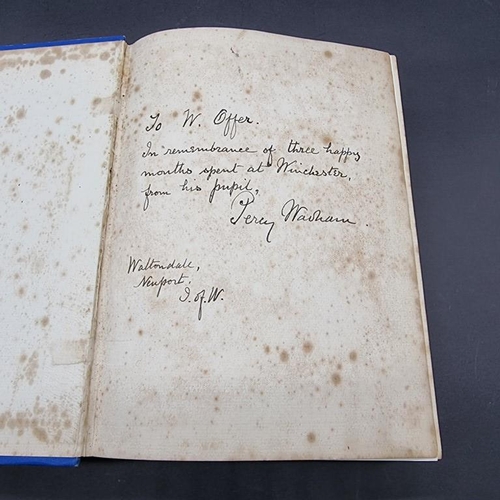 To W. Offer.
In remembrance of three happy
months spent at Winchester,
from his pupil,
Percy Wadham.
Waltondale,
Newport.
I. of. W.